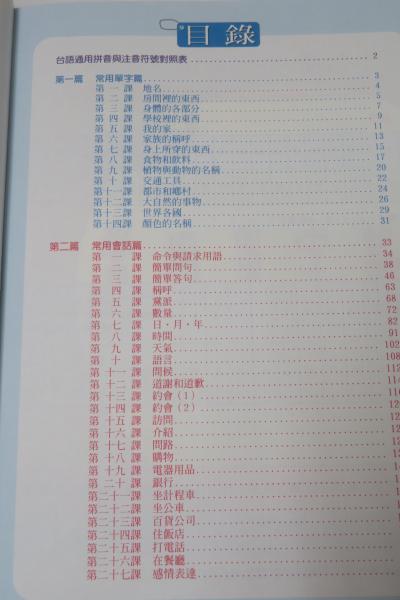 目錄
台語通用拼音與注音符號對照表 2
第一篇 常用單字篇 3
第一課 地名 4
第二課 房間裡的東西 5
第三課 身體的各部分 7
第四課 學校裡的東西 9
第五課 我的家 11
第六課 家族的稱呼 13
第七課 身上所穿的東西 15
第八課 食物和飲料 17
第九課 植物與動物的名稱 20
第十課 交通工具 22
第十一課 都市和鄉村 24
第十二課 大自然的事物 26
第十三課 世界各國 29
第十四課 顏色的名稱 31
第二篇 常用會話篇 33
第一課 命令與請求用語 34
第二課 簡單問句 38
第三課 簡單答句 46
第四課 稱呼 63
第五課 黨派 68
第六課 數量 72
第七課 日‧月‧年 82
第八課 時間 91
第九課 天氣 102
第十課 語言 108
第十一課 問候
第十二課 道謝和道歉
第十三課 約會(1)
第十四課 約會(2)
第十五課 訪問
第十六課 介紹
第十七課 問路
第十八課 購物
第十九課 電器用品
第二十課 銀行
第二十一課 坐計程車
第二十二課 坐公車
第二十三課 百貨公司
第二十四課 住飯店
第二十五課 打電話
第二十六課 在餐廳
第二十七課 感情表達